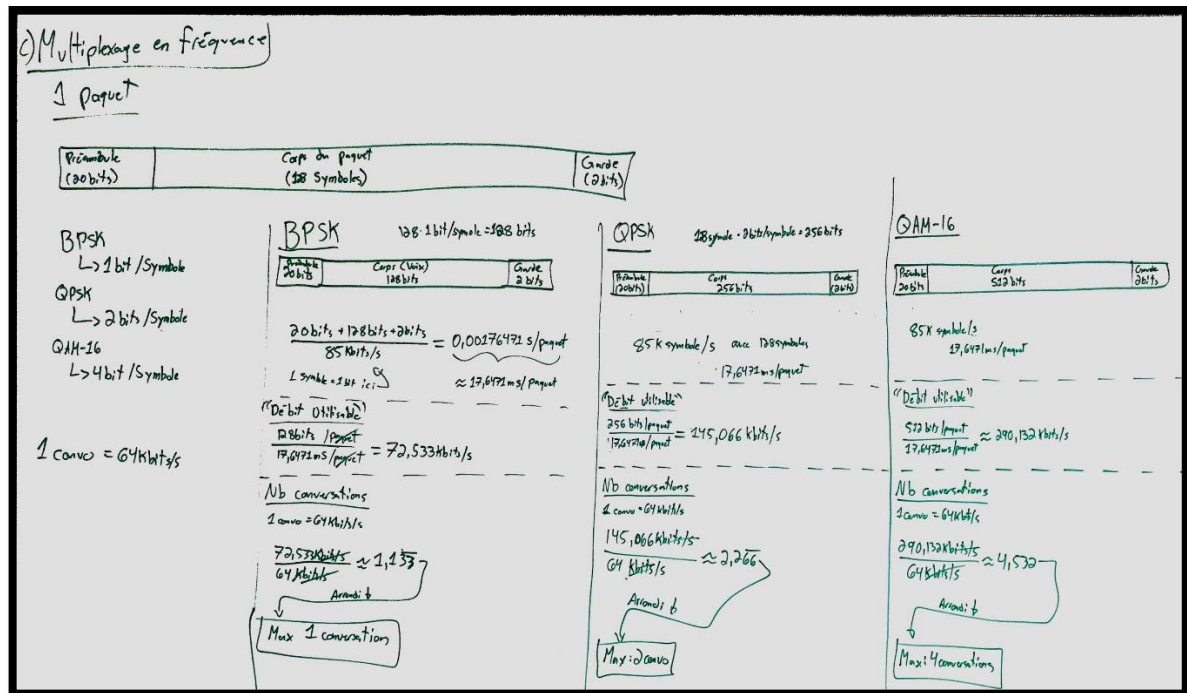 c) Multiplexage en fréquence
1 paquet
Préambule
(20 bits)
Corps du paquet
(128 Symboles)
Garde
(2 bits)
BPSK
↳ 1 bit /Symbole
QPSK
↳ 2 bits /Symbole
QAM-16
↳ 4 bit / Symbole
1 convo = 64 Kbits/s
BPSK 128 · 1 bit/symole = 128 bits
Préambule
20 bits
Corps (Voix)
128 bits
Garde
2 bits
20 bits + 128 bits + 2 bits
85 Kbits/s
= 0,00176471 s/paquet
1 symble = 1 bit ici
≈ 17,6471 ms/paquet
"Débit Utilisable"
128 bits /paquet
17,6471 ms/paquet
= 72,533 Kbits/s
Nb conversations
1 convo = 64 Kbits/s
72,533 Kbits/s
64 Kbits/s
≈ 1,133
Arrondi ↓
Max 1 conversation
QPSK 128 symole · 2 bits/symbole = 256 bits
Préambule
(20 bits)
Corps
256 bits
Garde
(2 bits)
85 K symbole/s avec 128 symboles
17,6471 ms/paquet
"Débit utilisable"
256 bits/paquet
17,6471 ms/paquet
= 145,066 Kbits/s
Nb conversations
1 convo = 64 Kbits/s
145,066 Kbits/s
64 Kbits/s
≈ 2,266
Arrondi ↓
Max : 2 convo
QAM-16
Préambule
20 bits
Corps
512 bits
Garde
2 bits
85 K symbole/s
17,6471 ms/paquet
"Débit utilisable"
512 bits/paquet
17,6471 ms/paquet
≈ 290,132 Kbits/s
Nb conversations
1 convo = 64 Kbits/s
290,132 Kbits/s
64 Kbits/s
≈ 4,532
Arrondi ↓
Max : 4 conversations